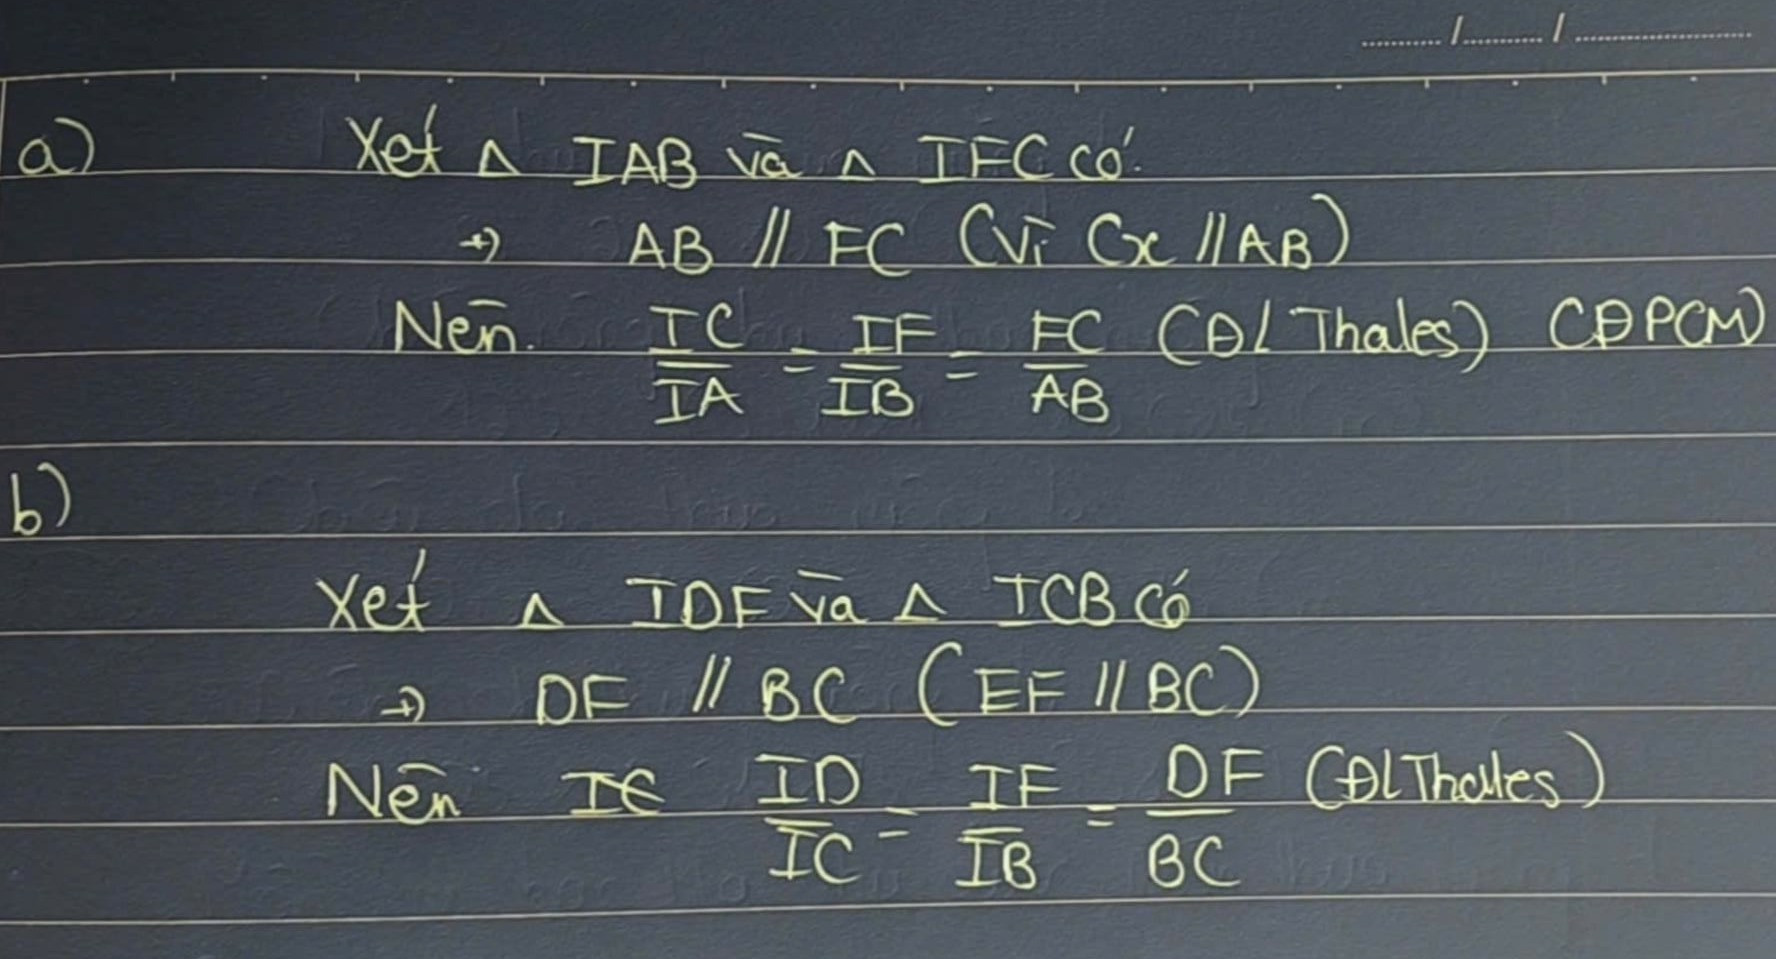 ....... / ....... / ...............
a) Xét Δ IAB và Δ IFC có.
+) AB // FC (Vì Cx // AB)
Nên. IC/IA = IF/IB = FC/AB (ĐL Thales) (ĐPCM)
b)
Xét Δ IDF và Δ ICB có
+) DF // BC (EF // BC)
Nên IC ID/IC = IF/IB = DF/BC (ĐL Thales)